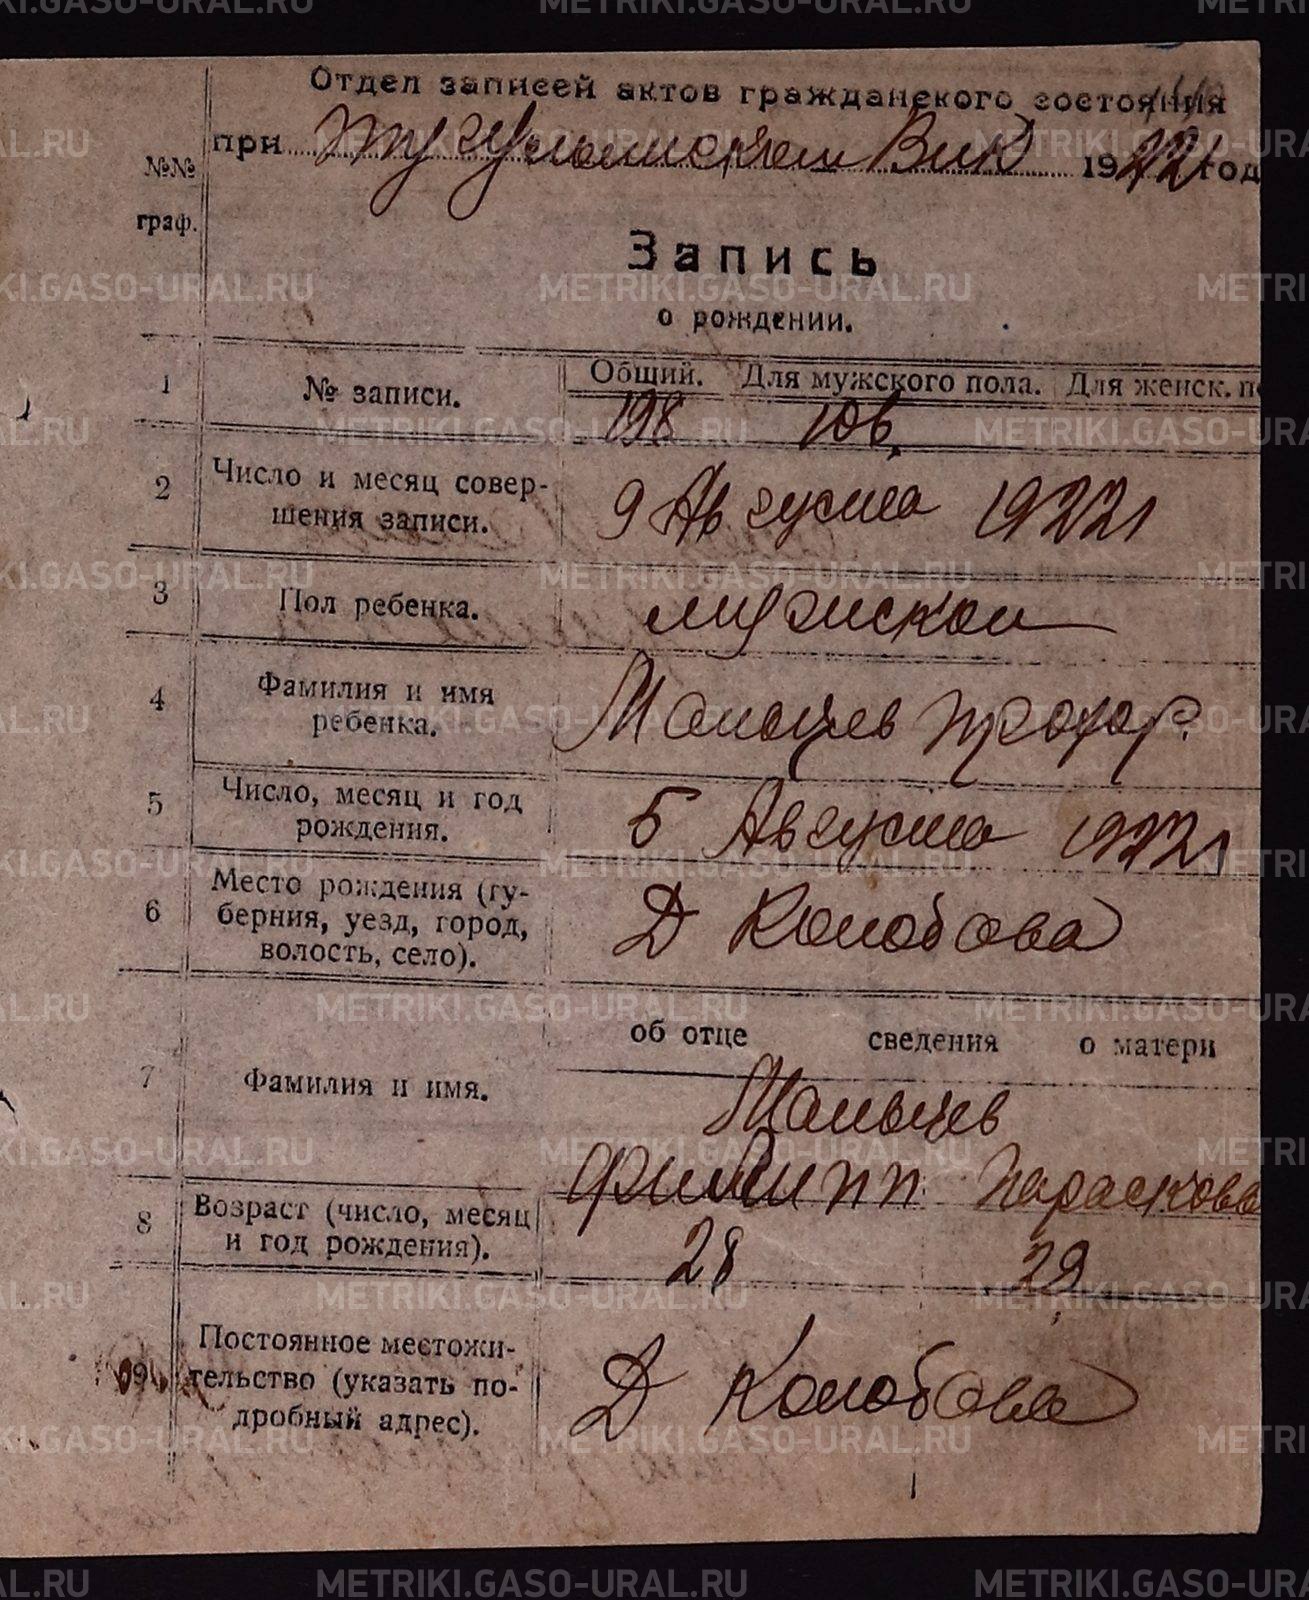 Отдел записей актов гражданского состояния
при Тугулымском Вик 1922 год
№№
граф.
Запись
о рождении.
1 № записи. Общий. Для мужского пола. Для женск. п
198 106
2 Число и месяц совер-
шения записи.
9 Августа 1922
3 Пол ребенка. мужской
4 Фамилия и имя
ребенка.
Мальцев Прохор.
5 Число, месяц и год
рождения.
5 Августа 1922
6 Место рождения (гу-
берния, уезд, город,
волость, село).
Д Колобова
об отце сведения о матери
7 Фамилия и имя.
Мальцев
Филипп Парасковья
8 Возраст (число, месяц
и год рождения).
28 29
9 Постоянное местожи-
тельство (указать по-
дробный адрес).
Д Колобова
METRIKI.GASO-URAL.RU